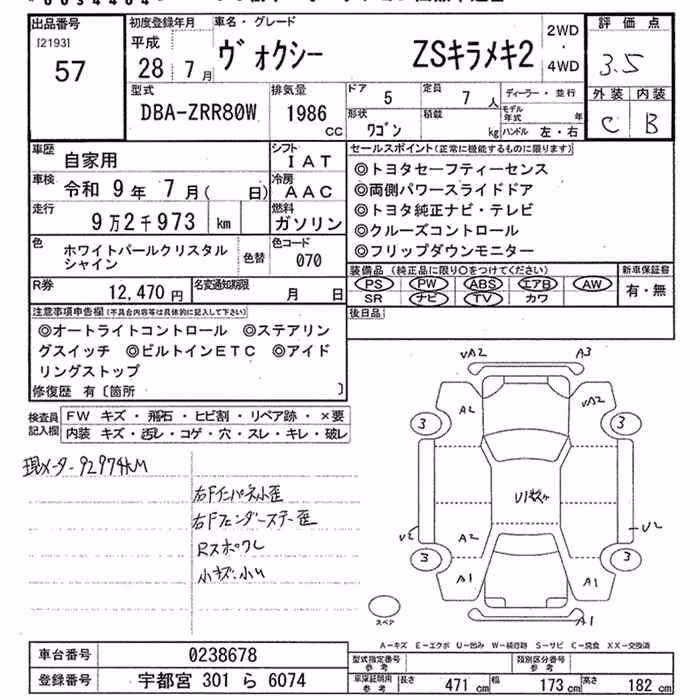 出品番号
[2193]
57
初度登録年月
平成
28 年 7 月
車名・グレード
ヴォクシー ZSキラメキ2
2WD
・
4WD
評価点
3.5
外装 内装
C B
型式
DBA-ZRR80W
排気量
1986 CC
ドア 5
定員 7 人
形状 ワゴン
積載 kg
ディーラー・並行
モデル年式 年
ハンドル 左・右
車歴 自家用
シフト IAT
車検 令和 9年 7月( 日)
冷房 AAC
走行 9万2千973 km
燃料 ガソリン
色 ホワイトパールクリスタルシャイン
色替
色コード 070
R券 12,470 円
名変通知期限 月 日
セールスポイント(正常に機能するものに限ります)
◎トヨタセーフティーセンス
◎両側パワースライドドア
◎トヨタ純正ナビ・テレビ
◎クルーズコントロール
◎フリップダウンモニター
装備品 (純正品に限り○をつけてください)
PS PW ABS エアB AW
SR ナビ TV カワ
新車保証書
有・無
後日品
注意事項申告欄(不具合内容等は具体的に記入して下さい)
◎オートライトコントロール ◎ステアリン
グスイッチ ◎ビルトインETC ◎アイド
リングストップ
修復歴 有〔箇所 〕
検査員記入欄
FW キズ・飛石・ヒビ割・リペア跡・×要
内装 キズ・汚レ・コゲ・穴・スレ・キレ・破レ
現メーター92974KM
右Fインパネ小歪
右Fフェンダーステー歪
Rスポワレ
小キズ・小U
VA2 A3
A2 VA2
3 3
U1数ヶ
V2 A2 V2
3 3
A1 A1
A1
スペア
A-キズ E-エクボ U-凹み W-補修跡 S-サビ C-腐食 XX-交換済
車台番号 0238678
登録番号 宇都宮 301 ら 6074
型式指定番号 参考
類別区分番号 参考
車庫証明用 参考
長さ 471 cm
幅 173 cm
高さ 182 cm